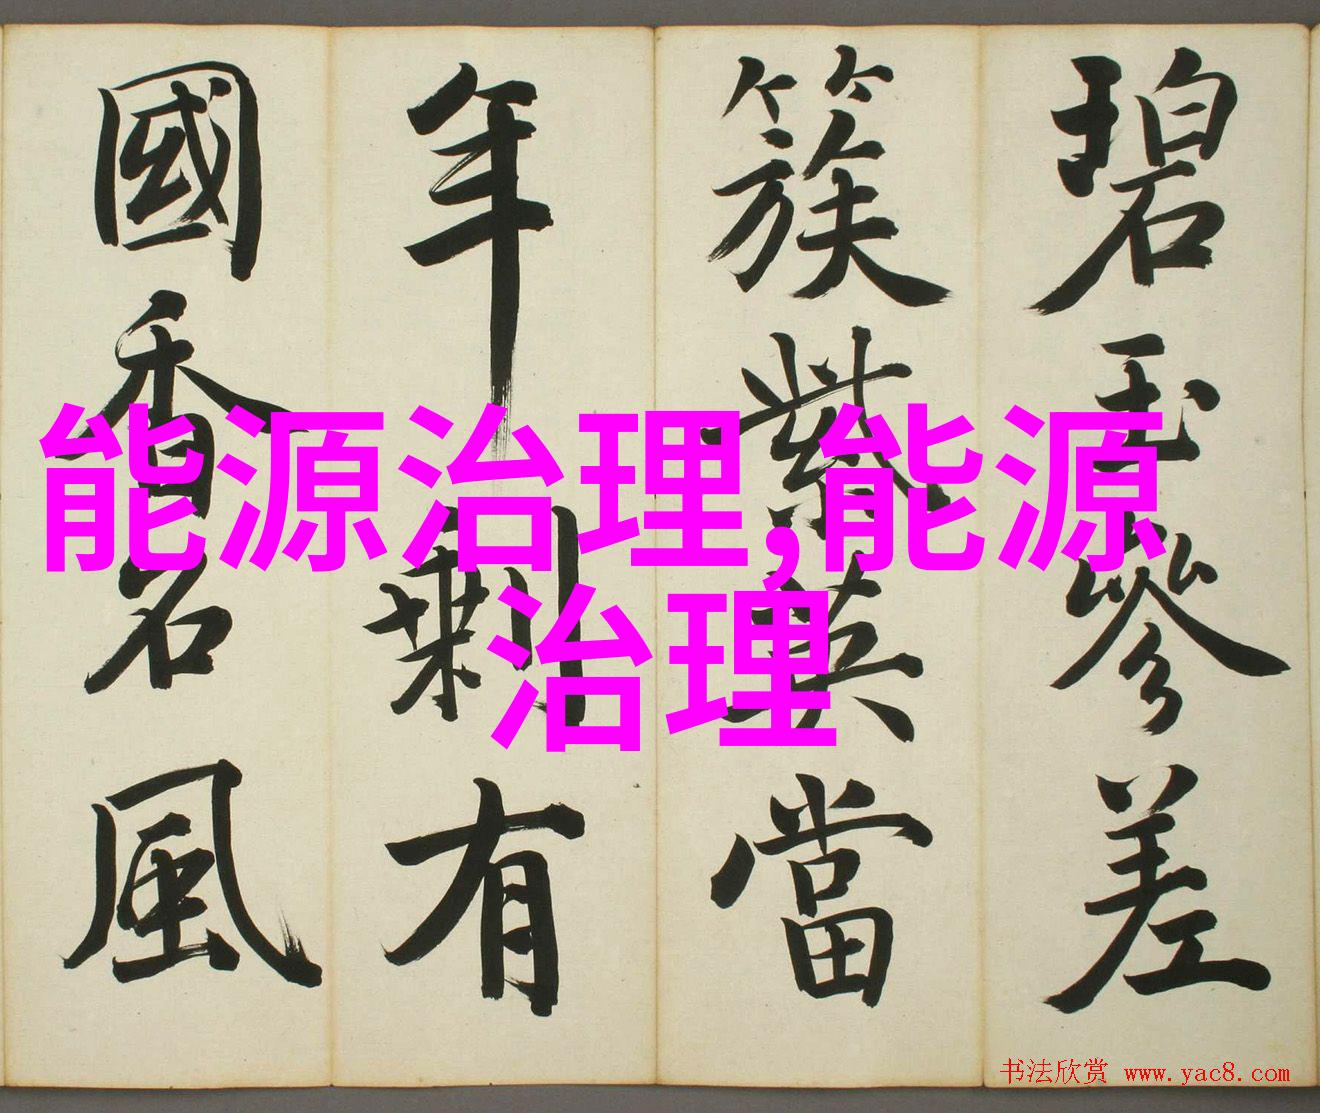 碧玉參差
簇紫英當
年剩有
國香名風
能源治理,能源
治理
书法欣赏 www.yac8.com